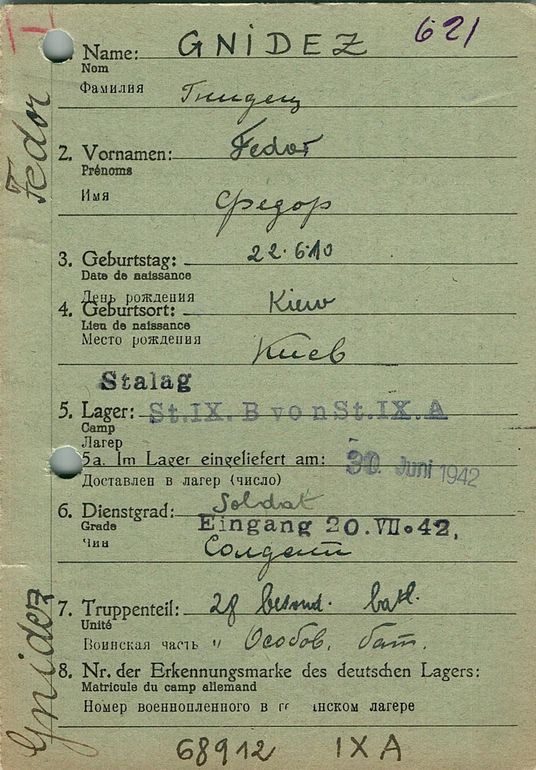 621
1. Name: GNIDEZ
Nom
Фамилия Гнидец
2. Vornamen: Fedor
Prénoms
Имя Федор
3. Geburtstag: 22.6.10
Date de naissance
День рождения
4. Geburtsort: Kiew
Lieu de naissance
Место рождения Киев
Stalag
5. Lager: St.IX.B von St.IX.A
Camp
Лагер
5a. Im Lager eingeliefert am: 30. Juni 1942
Доставлен в лагер (число)
6. Dienstgrad: Soldat
Grade Eingang 20.VII.42.
Чин Солдат
7. Truppenteil: 28 besond. batl.
Unité
Воинская часть " Особов. бат.
8. Nr. der Erkennungsmarke des deutschen Lagers:
Matricule du camp allemand
Номер военнопленного в ге нском лагере
68912 IX A
Fedor
Gnidez